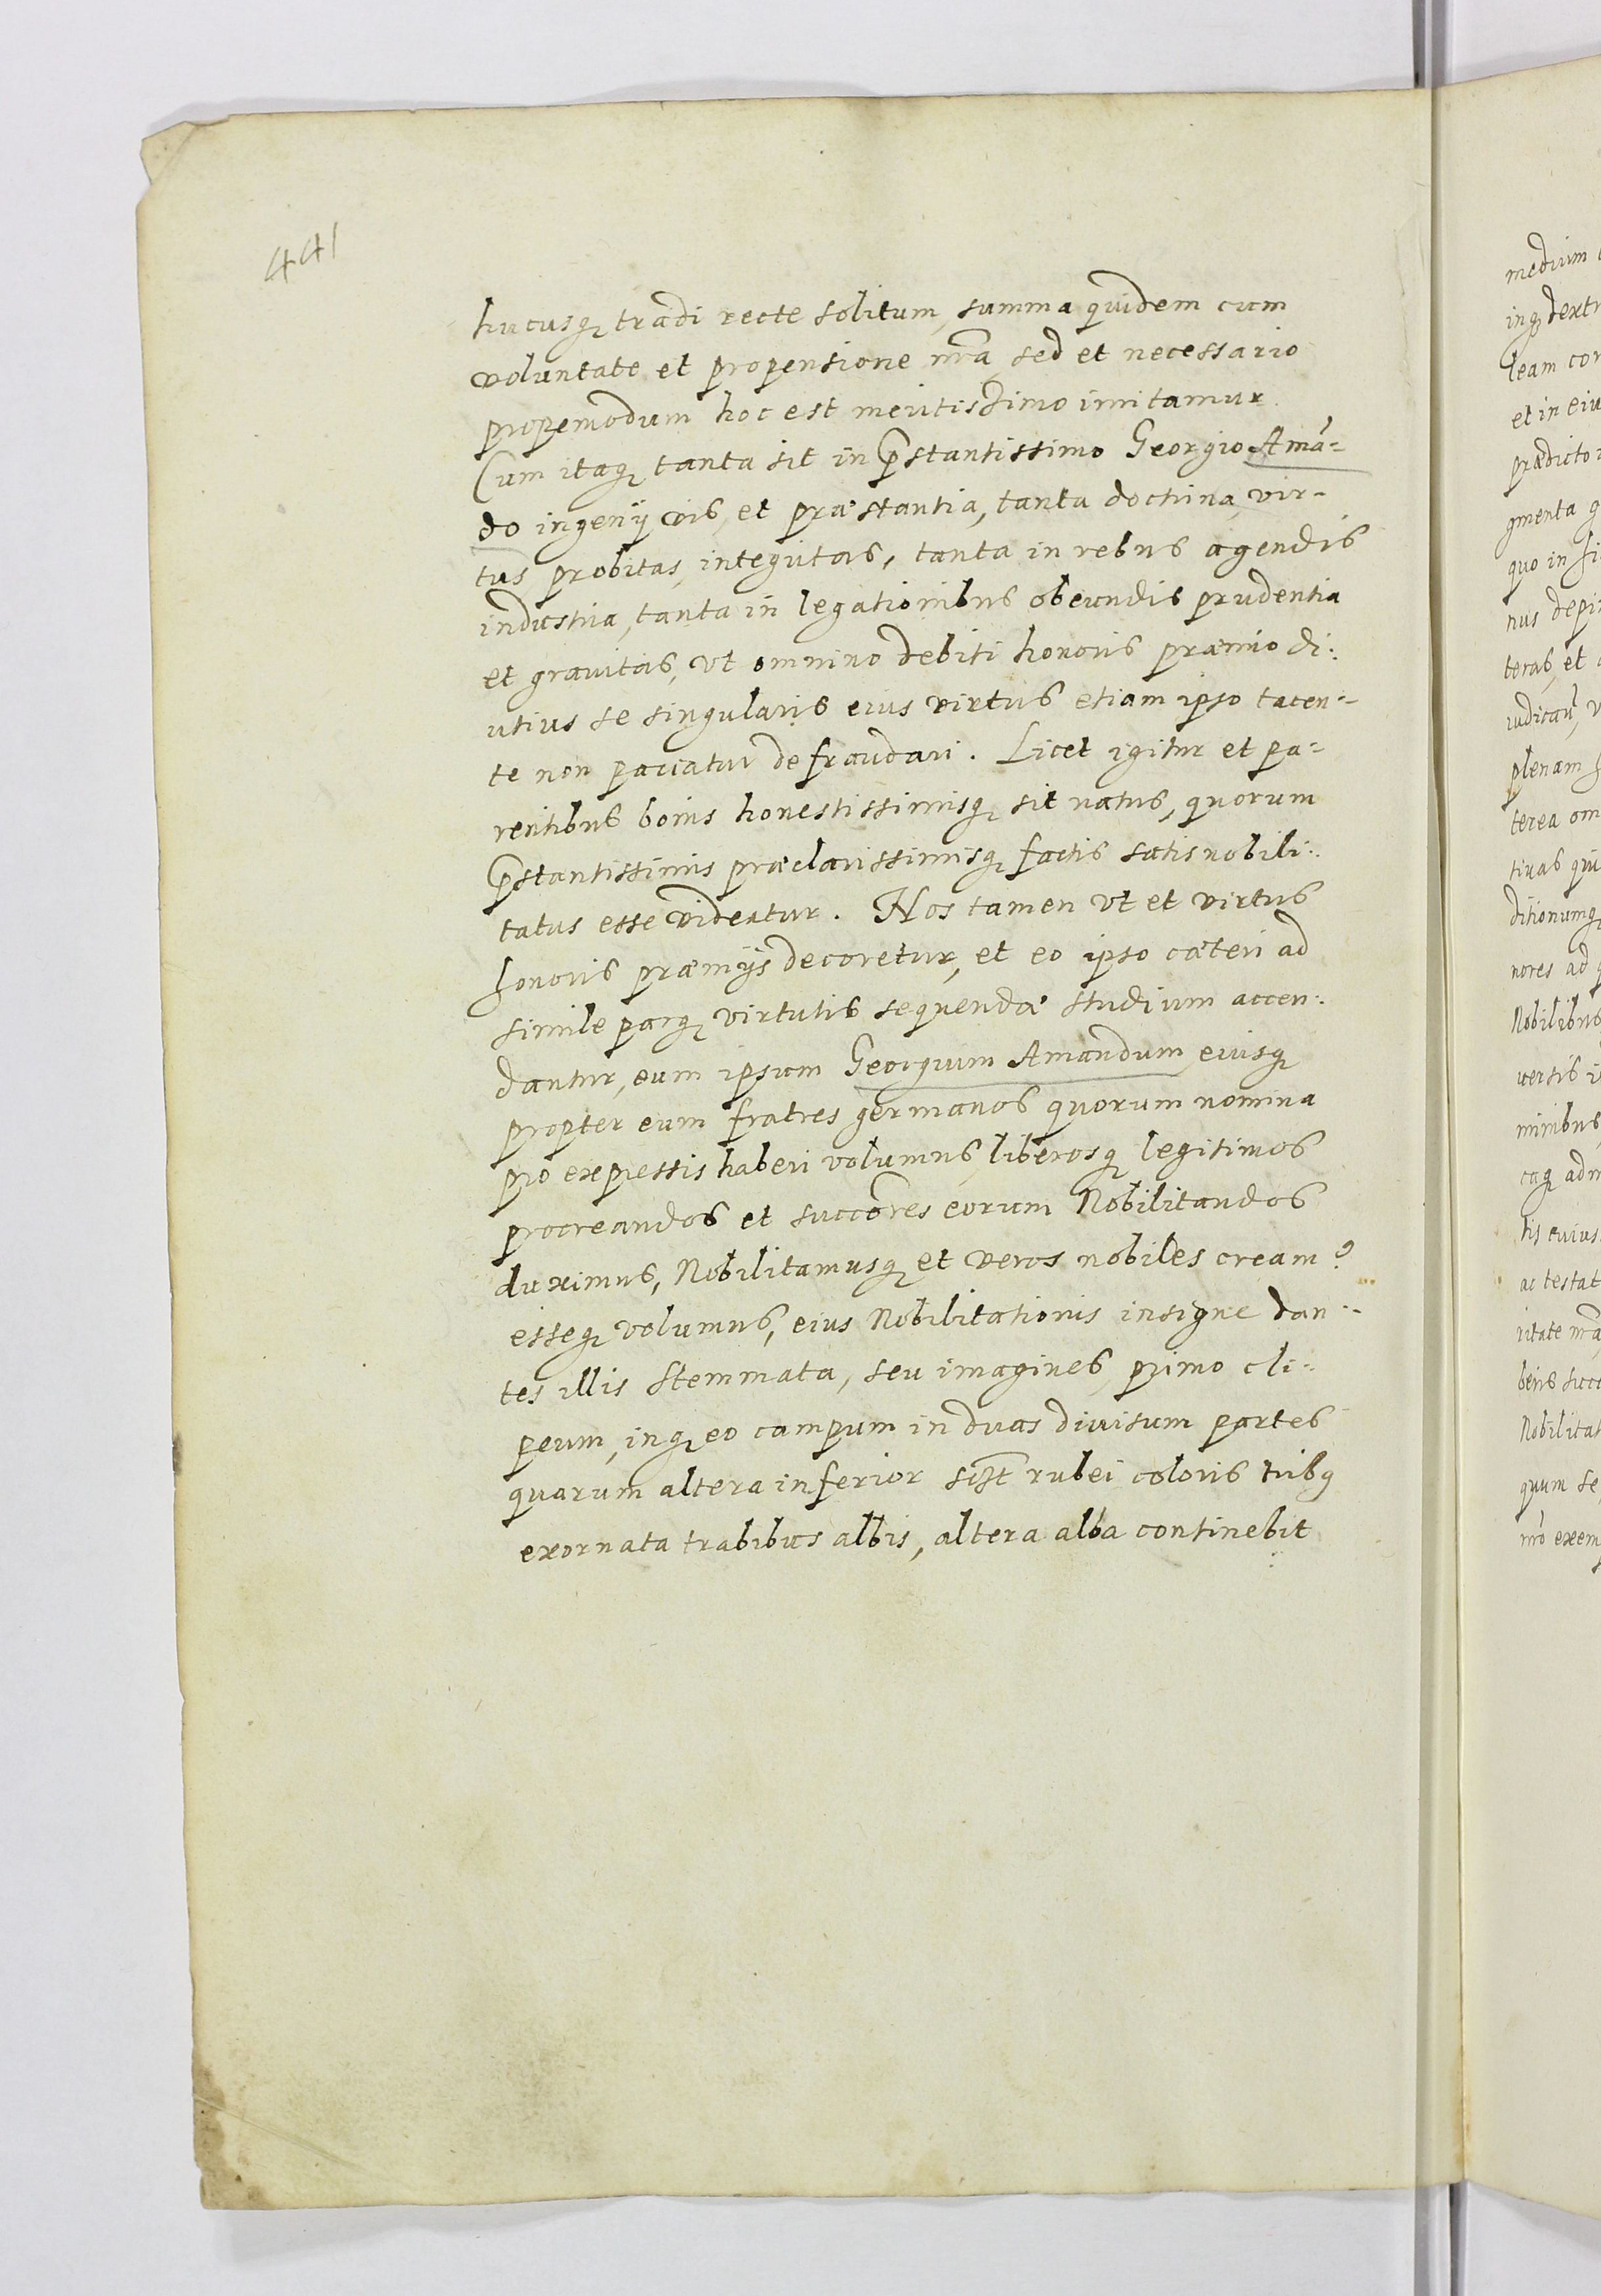 441
hucusq tradi recte solitum, summa quidem cum
voluntate et propensione nra sed et necessario
propemodum hoc est meritissimo imitamur.
Cum itaq tanta sit in pstantissimo Georgio Amā-
do ingenij vis, et præstantia, tanta doctrina, vir-
tus probitas, integritas, tanta in rebus agendis
industria, tanta in legationibus obeundis prudentia
et gravitas, ut omnino debiti honoris præmio di:
utius se singularis eius virtus etiam ipso tacen-
te non patiatur defraudari. Licet igitur et pa-
rentibus bonis honestissimisq sit natus, quorum
pstantissimis præclarissimisq factis satis nobili:
tatus esse videatur. Nos tamen ut et virtus
honoris præmijs decoretur, et eo ipso cæteri ad
simile parq virtutis sequendæ studium accen:
dantur, eum ipsum Georgium Amandum eiusq
propter eum fratres germanos quorum nomina
pro expressis haberi volumus, liberosq legitimos
procreandos et succores eorum Nobilitandos
duximus, Nobilitamusq et veros nobiles creamꝰ
esseq volumus, eius Nobilitationis insigne dan:
tes illis Stemmata, seu imagines, primo cli-
peum, inq eo campum in duas divisum partes
quarum altera inferior rubei coloris tribꝰ
exornata trabibus albis, altera alba continebit
medium
inq dextr
leam cor
et in eiu
prædictor
gmenta q
quo in
nus depi
teras, et
plenam
terea om
tivas qui
ditionumq
nores ad
Nobilibus
versis
minibus
caq adm
tis cuius
ac testat
beris succ
Nobilitat
quum se